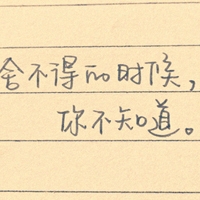 舍不得的时候，
你不知道。